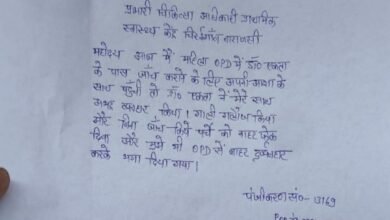 प्रभारी चिकित्सा अधिकारी प्राथमिक
स्वास्थ्य केंद्र चिरईगाँव वाराणसी
महोदय आज मैं महिला OPD में डॉ० एकता
के पास जाँच कराने के लिए अपनी आशा के
साथ पहुँची तो डॉ० एकता ने मेरे साथ
अभद्र व्यवहार किया। गाली गलौज किया
और बिना जाँच किये पर्चे को बाहर फेंक
दिया और मुझे भी OPD से बाहर दुर्व्यवहार
करके भगा दिया गया।
पंजीकरण सं०- 3169